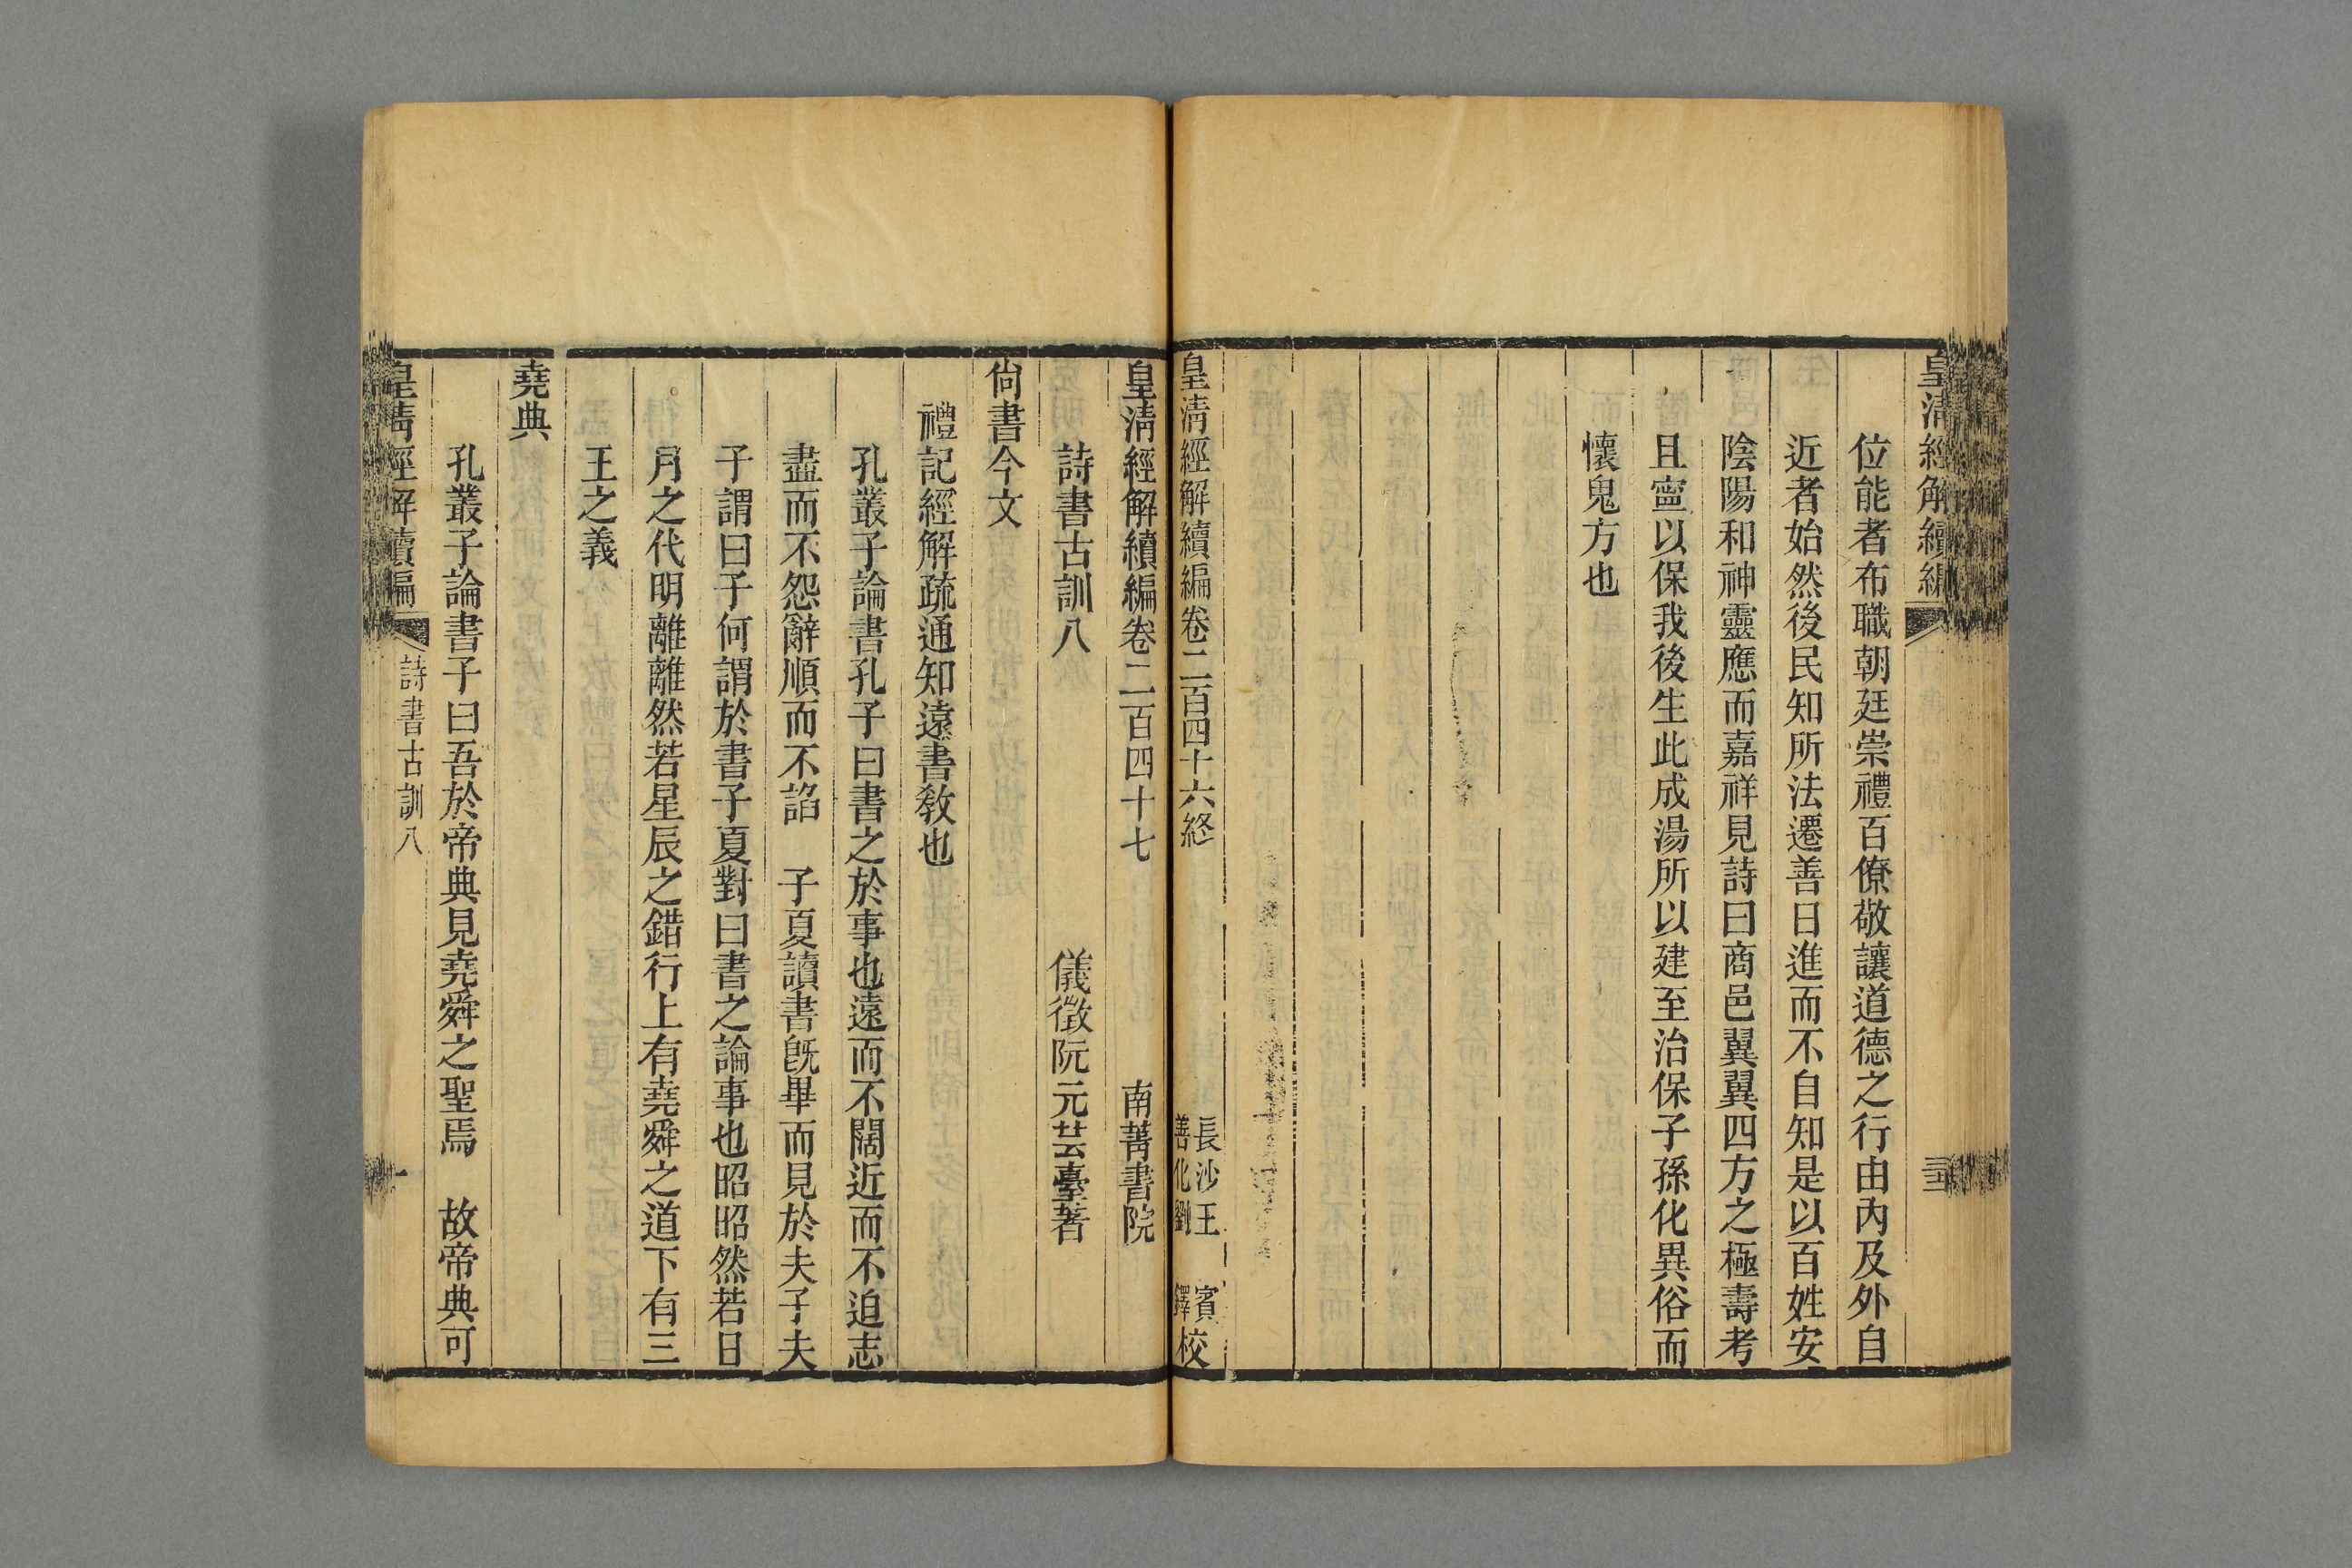 皇清經解續編
三
位能者布職朝廷崇禮百僚敬讓道德之行由內及外自
近者始然後民知所法遷善日進而不自知是以百姓安
陰陽和神靈應而嘉祥見詩曰商邑翼翼四方之極壽考
且寍以保我後生此成湯所以建至治保子孫化異俗而
懷鬼方也
皇清經解續編卷二百四十六終
長沙王 賓
善化劉 鐸 校
皇清經解續編卷二百四十七 南菁書院
詩書古訓八 儀徵阮元芸臺著
尚書今文
禮記經解疏通知遠書敎也
孔叢子論書孔子曰書之於事也遠而不闊近而不迫志
盡而不怨辭順而不諂 子夏讀書旣畢而見於夫子夫
子謂曰子何謂於書子夏對曰書之論事也昭昭然若日
月之代明離離然若星辰之錯行上有堯舜之道下有三
王之義
堯典
孔叢子論書子曰吾於帝典見堯舜之聖焉 故帝典可
皇清經解續編 詩書古訓八 一